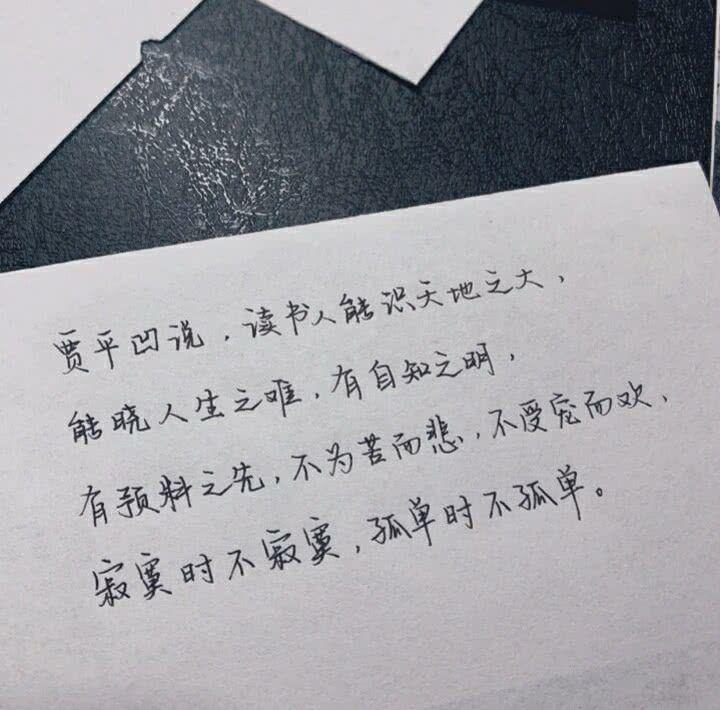 贾平凹说，读书人能识天地之大，
能晓人生之难，有自知之明，
有预料之先，不为苦而悲，不受宠而欢，
寂寞时不寂寞，孤单时不孤单。